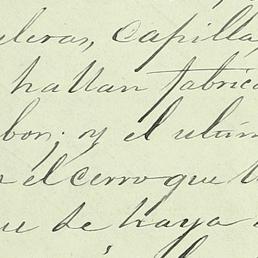 uleras, capilla,
hallan fabrica
bon; y el ulti
el cerro que
ue se haya